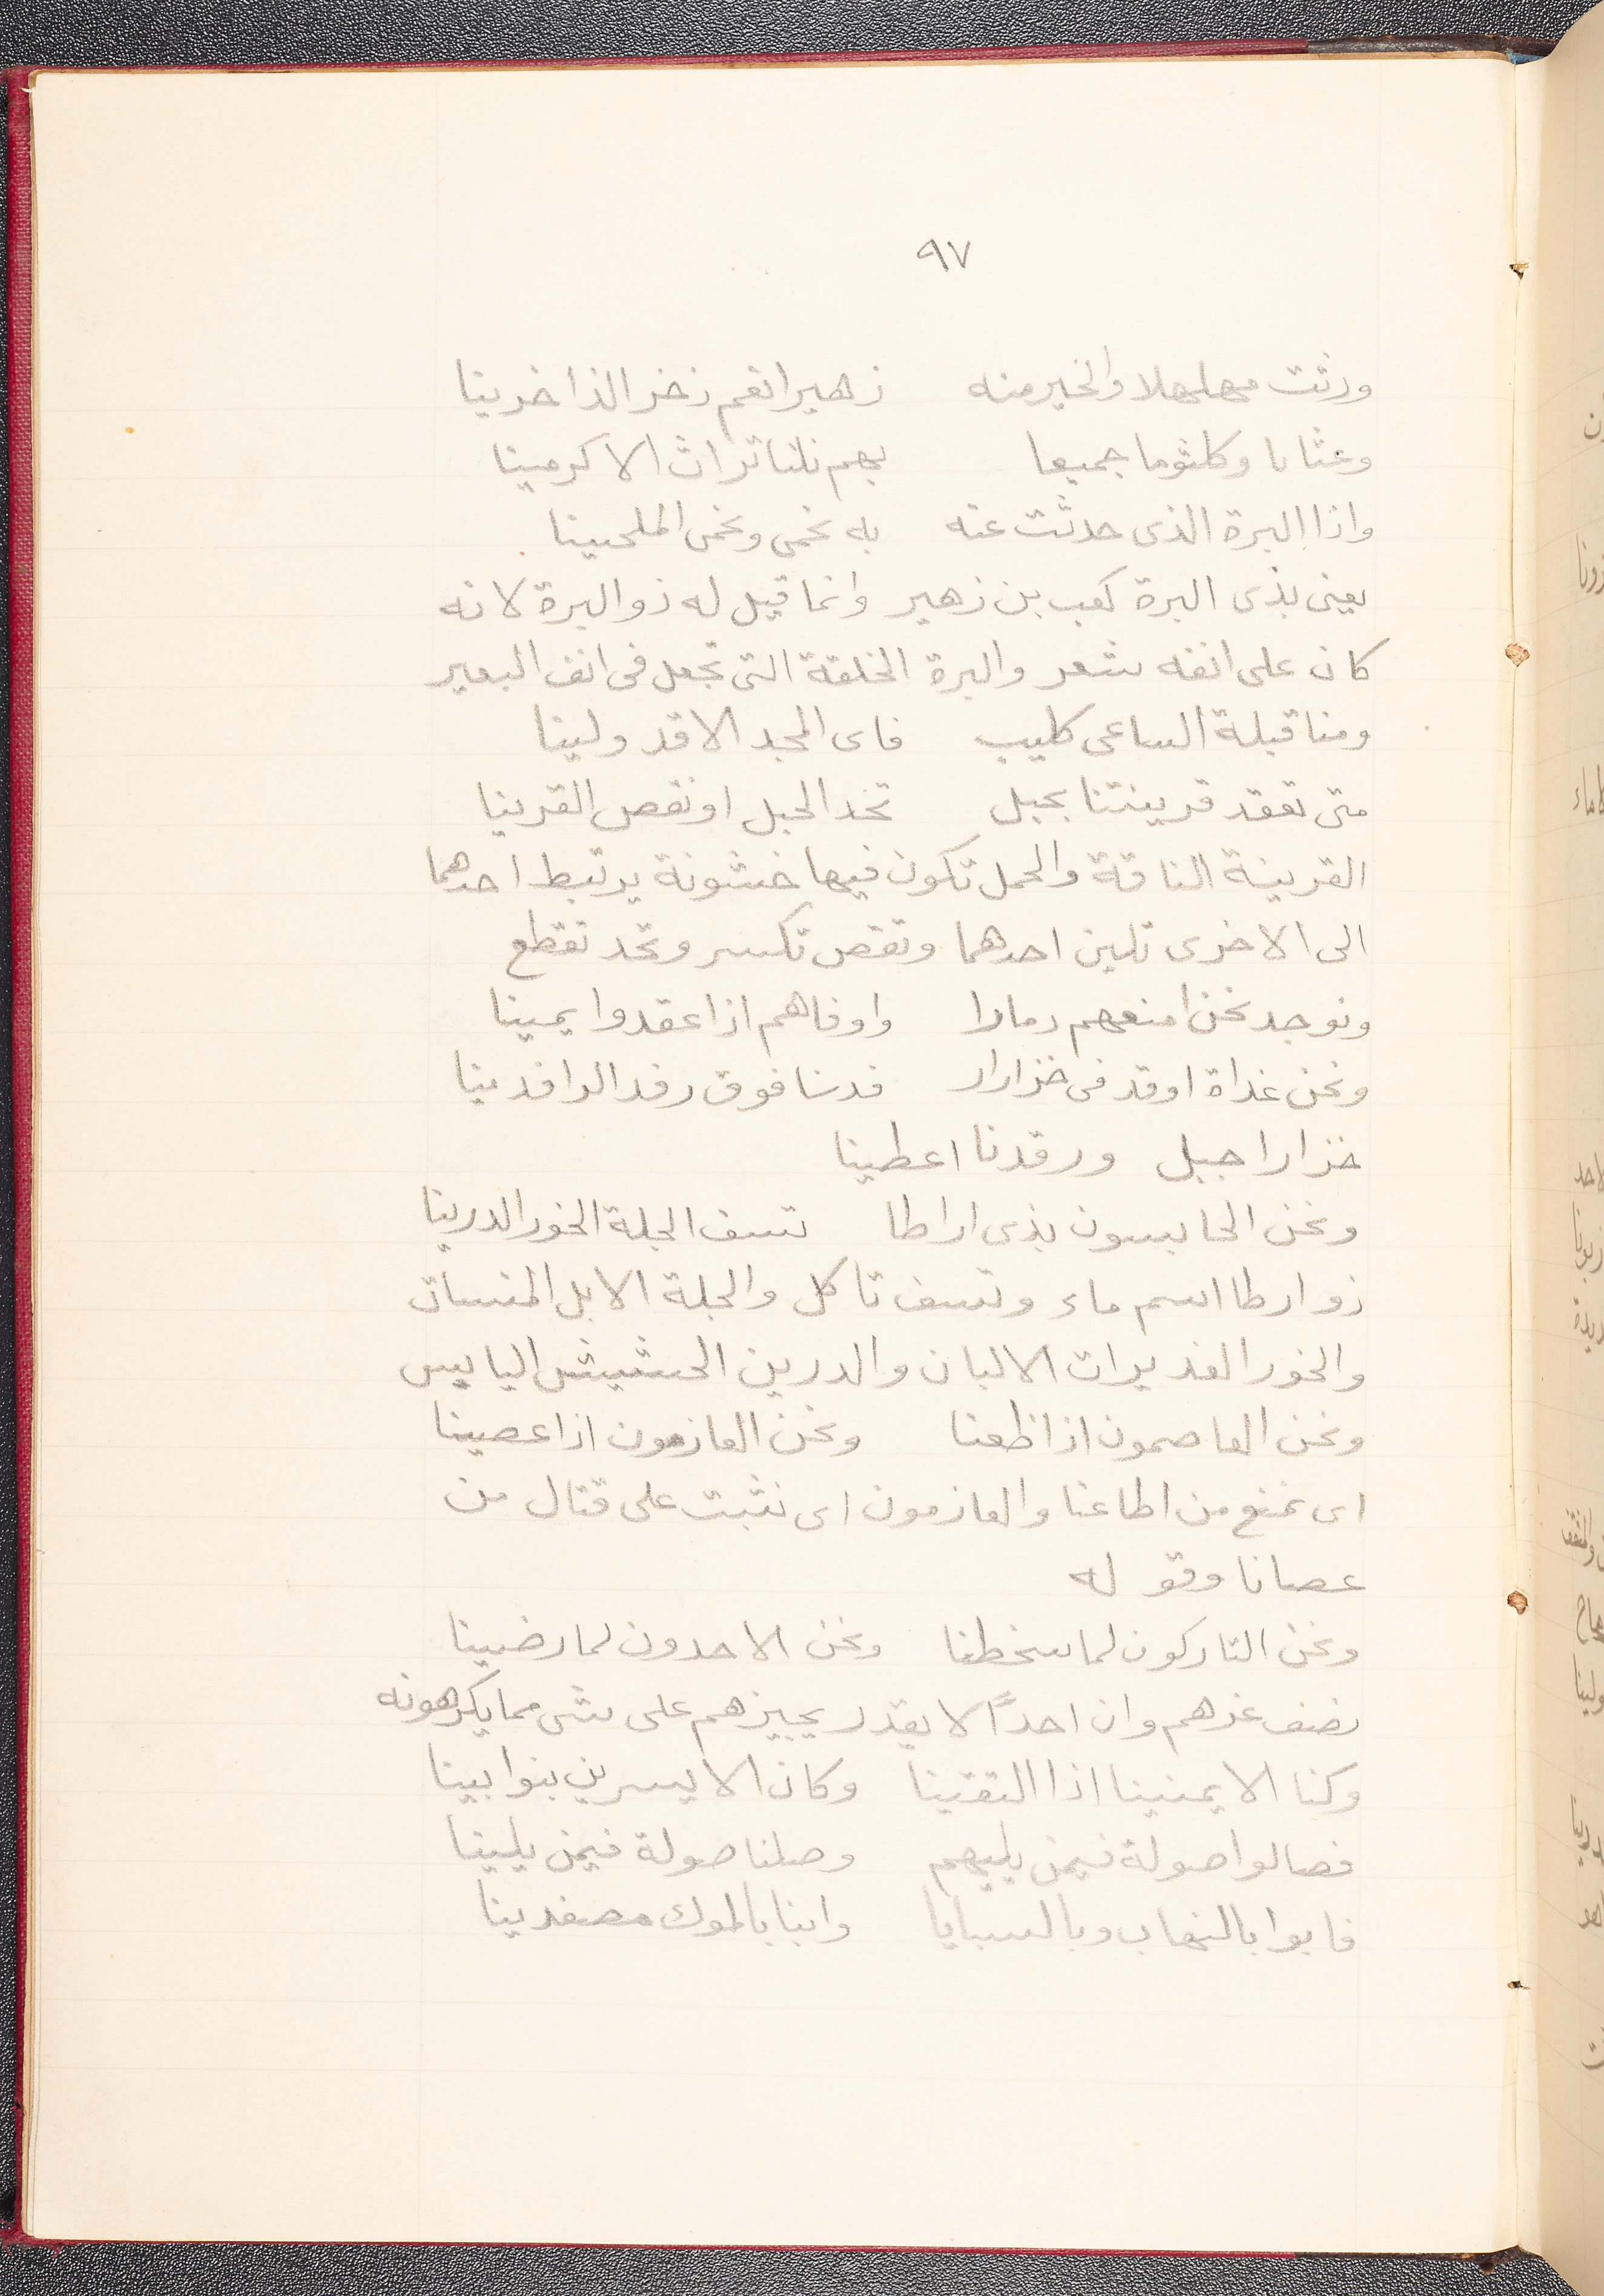 ٩٧
ورثت مهلهلا والخير منه زهيرا نعم ذخر الذاخرينا
وعتابا وكلثوما جميعا بهم نلنا تراث الاكرمينا
واذا البرة الذى حدثت عنه به نحمى ونحمى الملحينا
يعنى بذى البرة كعب بن زهير وانما قيل له ذو البرة لانه
كان على انفه شعر والبرة الحلقة التى تجعل فى انف البعير
ومنا قبلة الساعى كليب فاى المجد الا قد ولينا
متى تعقد قرينتنا بحبل تخد الحبل او نقص القرينا
القرينة الناقة والجمل تكون فيها خشونة يرتبط احدهما
الى الاخرى تلين احدهما وتقص تكسر وتخد تقطع
ونوجد نحن امنعهم دمارا واوفاهم اذا عقدوا يمينا
ونحن غداة اوقد فى خزارا فدنا فوق رفد الرافدينا
خزارا جبل ورقدنا اعطينا
ونحن الحابسون بذى اراطا تسف الجلة الخور الدرينا
ذو ارطا اسم ماء وتسف تاكل والجلة الابل المنسات
والخور الغديرات الالبان والدرين الحشيش اليابس
ونحن العاصمون اذا ظعنا ونحن العازمون اذا عصينا
اى نمنع من اطاعنا والعازمون اى نثبت على قتال من
عصانا وقوله
ونحن التاركون لما سخطنا ونحن الاحدون لما رضينا
نصف عزهم وان احدًا لا يقدر يجيزهم على شى مما يكرهونه
وكنا الايمنينا اذا التقينا وكان الايسرين بنوا بينا
فصالوا صولة فيمن يليهم وصلنا صولة فيمن يلينا
فابوا بالنهاب وبالسبايا وابنا بالموك مصفدينا